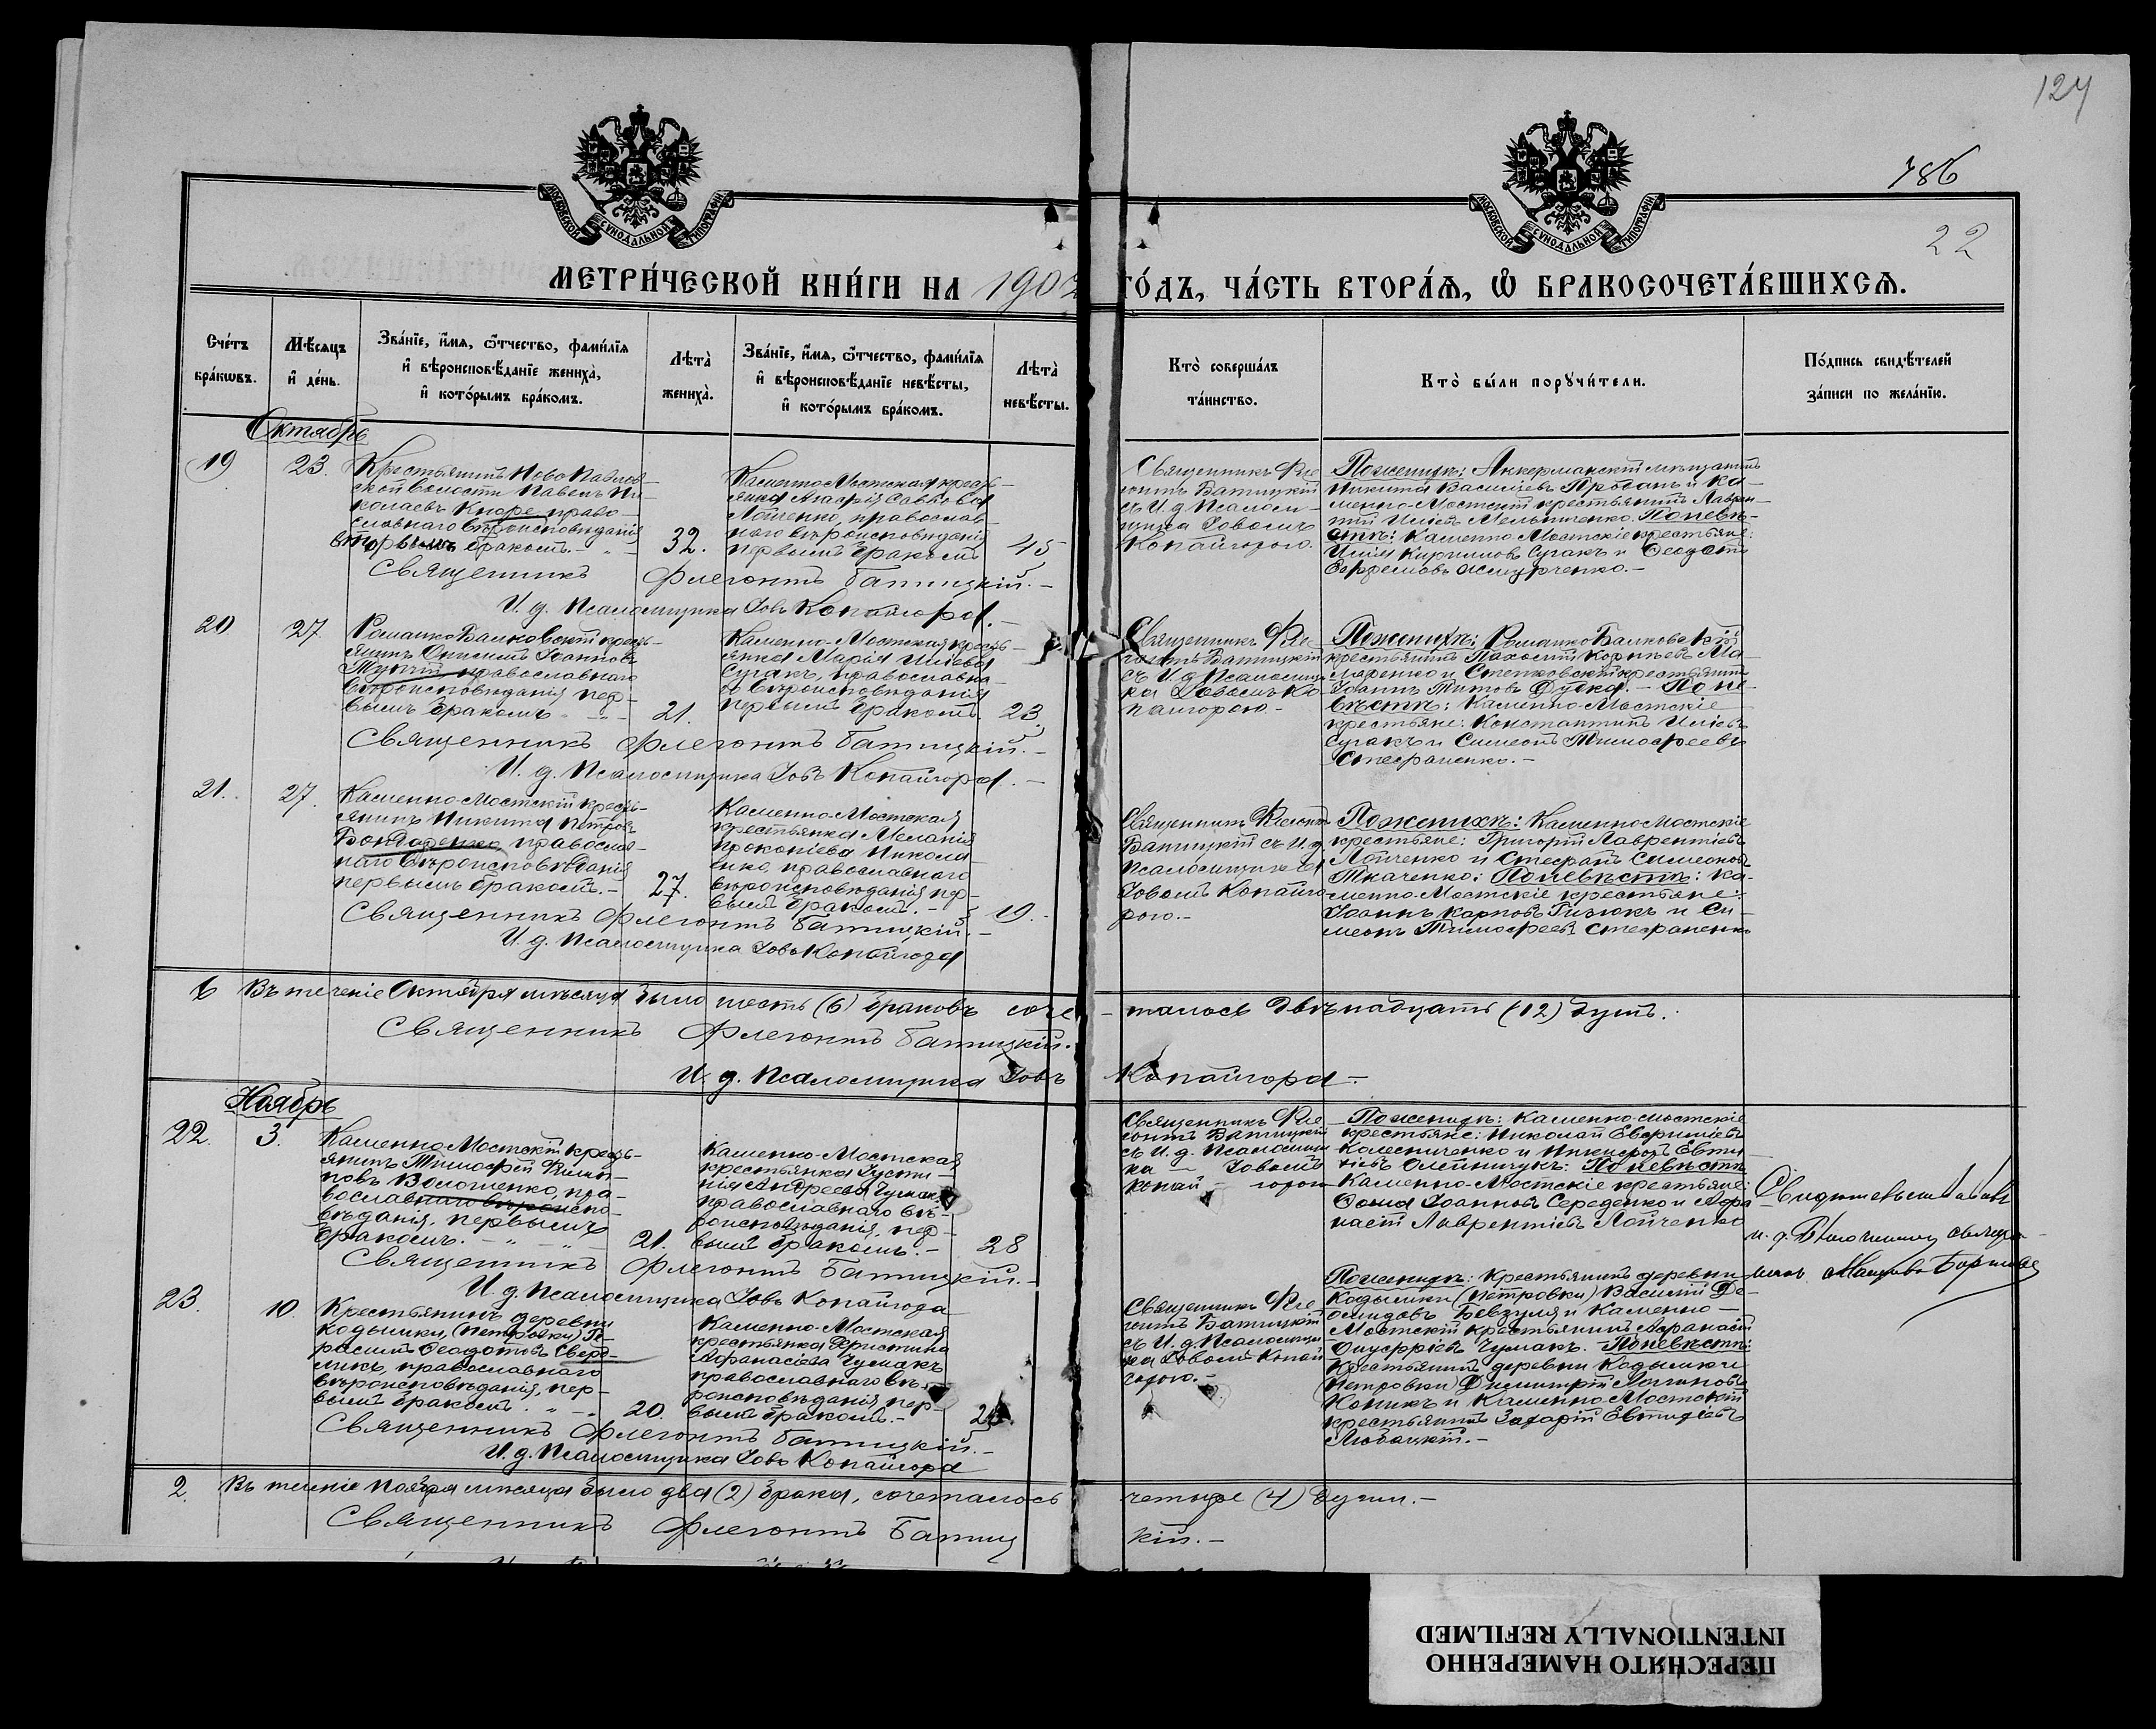 124
786
22
МОСКОВСКОЙ СУНОДАЛЬНОЙ ТИПОГРАФІИ
МОСКОВСКОЙ СУНОДАЛЬНОЙ ТИПОГРАФІИ
МЕТРИ́ЧЕСКОЙ КНИ́ГИ НА 1902 ГО́ДЪ, ЧА́СТЬ ВТОРА́Ѧ, Ѽ БРАКОСОЧЕТА́ВШИХСѦ.
Сче́тъ
бра́кѡвъ.
Мѣ́сяцъ
и҆ де́нь.
Зва́нїе, и҆́мѧ, ѻ҆́тчество, фами́лїѧ
и҆ вѣроисповѣ́данїе жениха̀,
и҆ кото́рымъ бра́комъ.
Лѣта̀
жениха̀.
Зва́нїе, и҆́мѧ, ѻ҆́тчество, фами́лїѧ
и҆ вѣроисповѣ́данїе невѣ́сты,
и҆ кото́рымъ бра́комъ.
Лѣта̀
невѣ́сты.
Кто̀ соверша́лъ
та́инство.
Кто̀ бы́ли порꙋчи́тели.
По́дпись свидѣ́телей
за́писи по жела́нїю.
Октябрь
19
23.
Крестьянинъ Ново Павлов-
ской волости Павелъ Ни-
колаевъ Кнюре право-
славнаго вѣроисповѣданія
вторымъ бракомъ.-
32.
Каменно-Мостская кресть-
янка
Лойченко, православ-
наго вѣроисповѣданія
первымъ бракомъ
45
Священникъ Фле-
гонтъ Батицкій
съ И. д. Псалом-
щика Іовомъ
Копайгорою.
По женихѣ: Аккерманскій мѣщанинъ
Никита Васильевъ и Ка-
менно-Мостскій крестьянинъ Лаврен-
тій Иліевъ Мельниченко. По невѣ-
стѣ: Каменно Мостскіе крестьяне:
Илія Кирилловъ Сугакъ и Ѳеодотъ
Священникъ Флегонтъ Батицкій.-
И. д. Псаломщика Іовъ Копайгора.-
20
27
Романко Балковскій кресть-
янинъ Онисимъ Іоанновъ
православнаго
вѣроисповѣданія пер-
вымъ бракомъ
21.
Каменно-Мостская кресть-
янка Марія Иліева
Сугакъ, православна-
го вѣроисповѣданія
первымъ бракомъ.
23.
Священникъ Фле-
гонтъ Батицкій
съ И. д. Псаломщи-
ка Іовомъ Ко-
пайгорою.-
По женихѣ: Романко Балковскій
крестьянинъ Пахомій Корнѣевъ Ма-
ляренко и Степковскій крестьянинъ
Іоаннъ Титовъ Дудка.- По не-
вѣстѣ: Каменно-Мостскіе
крестьяне: Константинъ Иліевъ
Сугакъ и Симеонъ Тимофеевъ
Стефаненко.-
Священникъ Флегонтъ Батицкій.-
И. д. Псаломщика Іовъ Копайгора.-
21.
27.
Каменно-Мостскій кресть-
янинъ Никита Петровъ
Бондаренко, православ-
наго вѣроисповѣданія
первымъ бракомъ.-
27.
Каменно-Мостская
крестьянка Меланія
Прокопіева Никола-
енко, православнаго
вѣроисповѣданія пер-
вымъ бракомъ.-
19.-
Священникъ Флегонтъ
Батицкій съ И. д.
Псаломщика
Іовомъ Копайго-
рою.-
По женихѣ: Каменно Мостскіе
крестьяне: Григорій Лаврентіевъ
Лойченко и Стефанъ Симеоновъ
Ткаченко: По невѣстѣ: Ка-
менно-Мостскіе крестьяне:
Іоаннъ Карповъ Гизюкъ и Си-
меонъ Тимофеевъ Стефаненко
Священникъ Флегонтъ Батицкій.-
И. д. Псаломщика Іовъ Копайгора
6 Въ теченіе Октября мѣсяца было шесть (6) браковъ соче-талось двѣнадцать (12) душъ.
Священникъ Флегонтъ Батицкій.
И. д. Псаломщика Іовъ Копайгора.-
Ноябрь
22.
3.
Каменно-Мостскій кресть-
янинъ Тимофей Филип-
повъ Волошенко, пра-
вославнаго вѣроиспо-
вѣданія, первымъ
бракомъ.
21.
Каменно-Мостская
крестьянка Іусти-
нія Андреева Чумакъ
православнаго вѣ-
роисповѣданія, пер-
вымъ бракомъ.-
28
Священникъ Фле-
гонтъ Батицкій
съ И. д. Псаломщи-
ка Іовомъ
Копай-горою
По женихѣ: Каменно-Мостскіе
крестьяне: Николай Евфиміевъ
Колесниченко и Никифоръ Евти-
хіевъ Олейничукъ: По невѣстѣ
Каменно-Мостскіе крестьяне:
Ѳома Іоанновъ Середенко и Афа-
насій Лаврентіевъ Лойченко
Священникъ Флегонтъ Батицкій.-
И. д. Псаломщика Іовъ Копайгора
23.
10.
Крестьянинъ деревни
Кодымки, (Петровки) Ге-
расимъ Ѳеодотовъ
православнаго
вѣроисповѣданія, пер-
вымъ бракомъ.
20.
Каменно-Мостская
крестьянка Христина
Афанасіева Чумакъ
православнаго вѣ-
роисповѣданія, пер-
вымъ бракомъ.-
Священникъ Фле-
гонтъ Батицкій
съ И. д. Псаломщи-
ка Іовомъ Копай-
горою.-
По женихѣ: Крестьянинъ деревни
Кодымки (Петровки) Василій
Бевзуля и Каменно-
Мостскій крестьянинъ Афанасій
Онуфріевъ Чумакъ. По невѣстѣ:
Крестьянинъ деревни Кодымки
(Петровки) Димитрій Логиновъ
Коникъ и Каменно-Мостскій
крестьянинъ Захарій Евтихіевъ
Любацкій.-
Священникъ Флегонтъ Батицкій.-
И. д. Псаломщика Іовъ Копайгора
2. Въ теченіе Ноября мѣсяца было два (2) брака, сочеталось четыре (4) души.-
Священникъ Флегонтъ Батицкій.-
ПЕРЕСНЯТО НАМЕРЕННО
INTENTIONALLY REFILMED